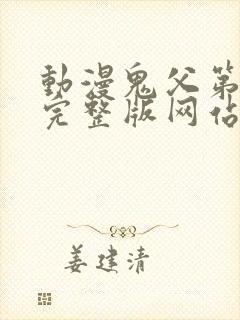 動漫鬼父第
完整版网佔
姜建清